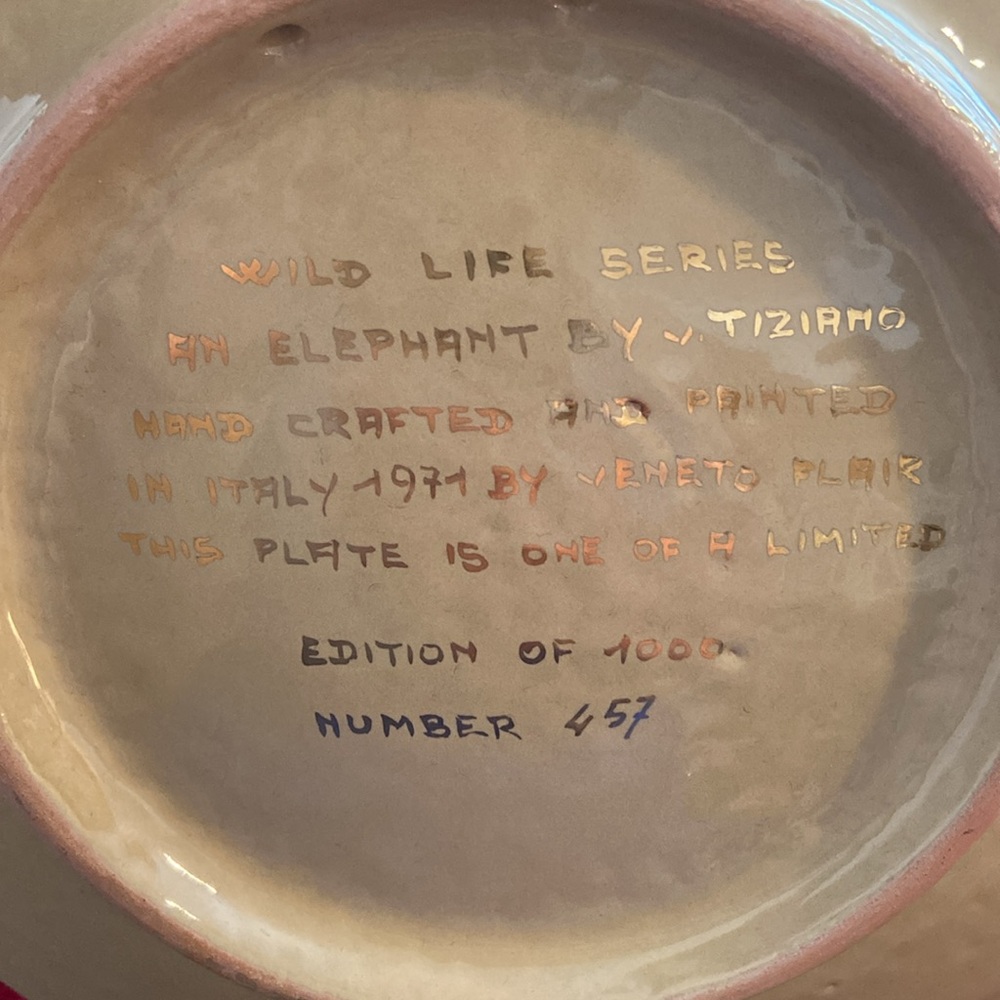 WILD LIFE SERIES
AN ELEPHANT BY V. TIZIANO
HAND CRAFTED AND PAINTED
IN ITALY 1971 BY VENETO FLAIR
THIS PLATE IS ONE OF A LIMITED
EDITION OF 1000
NUMBER 457